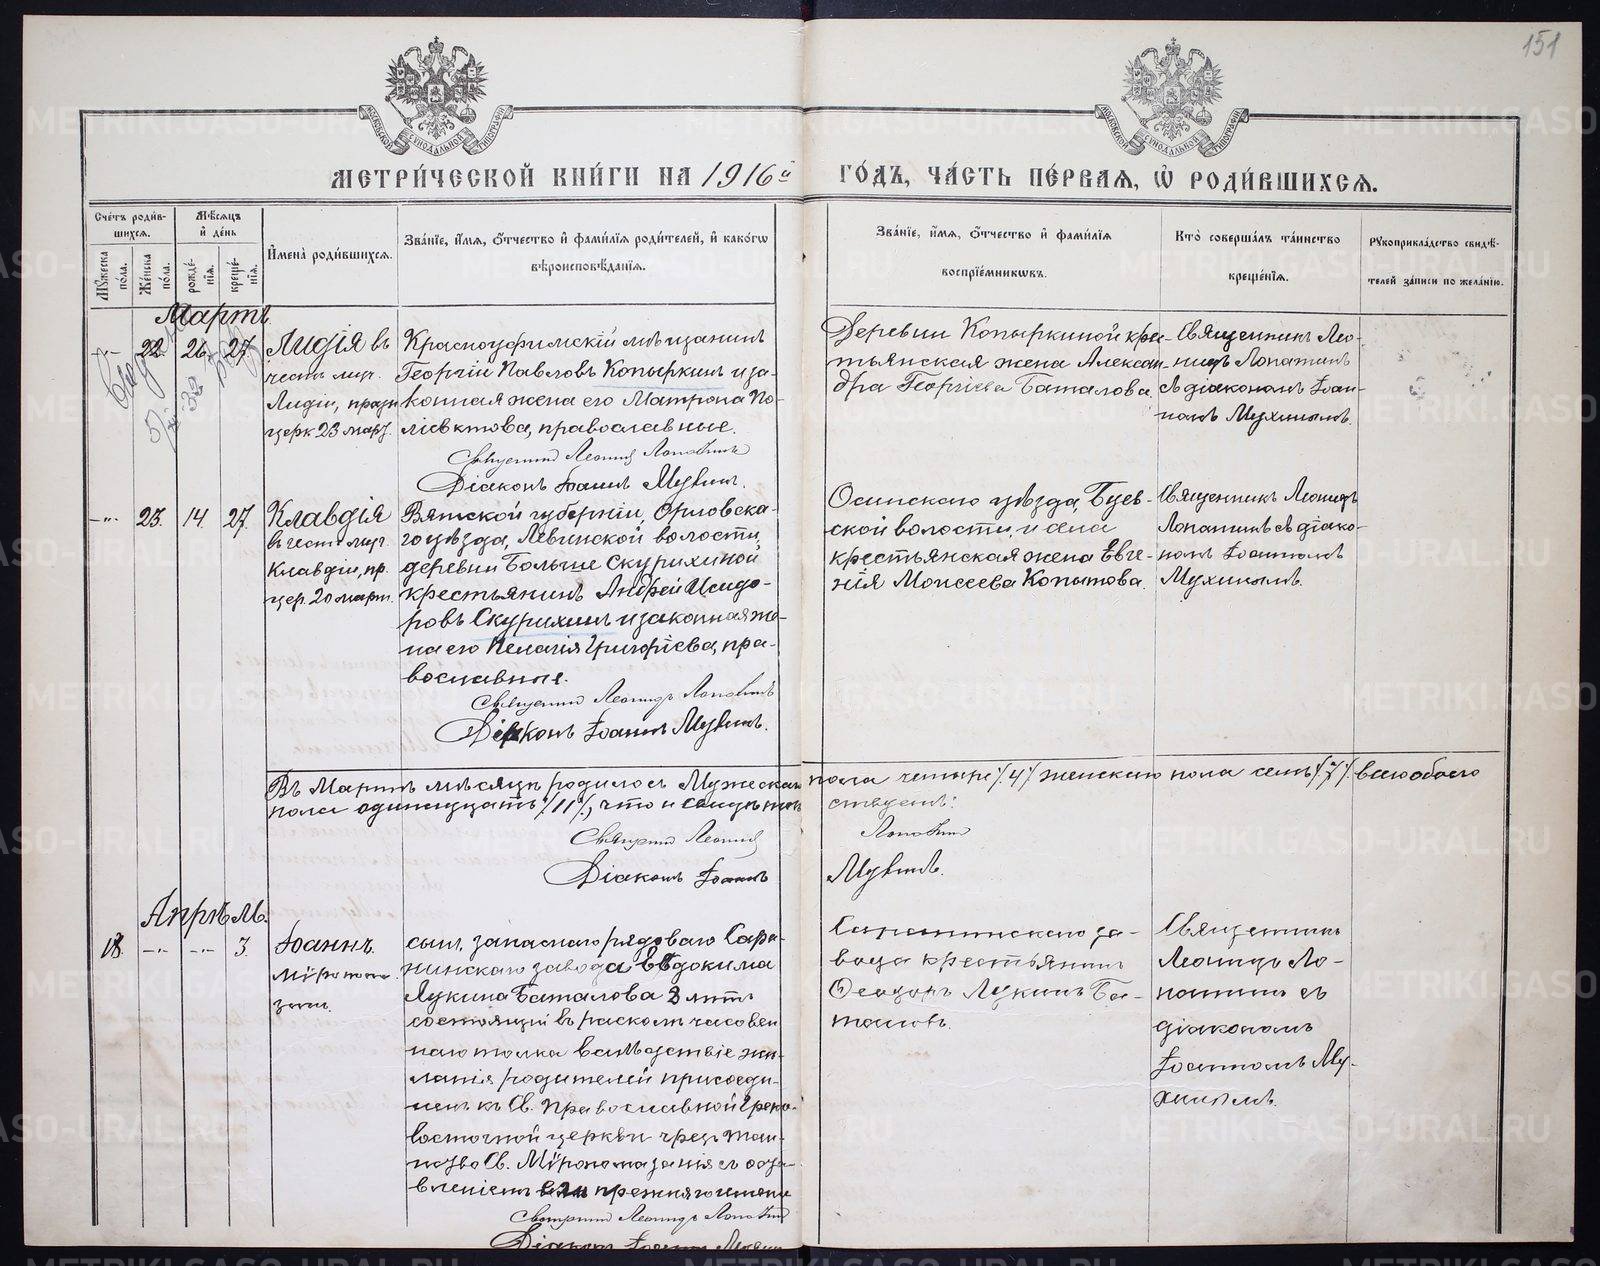 151
МЕТРИ́ЧЕСКОЙ КНИ́ГИ НА 1916й ГО́ДЪ, ЧА́СТЬ ПЕ́РВАЯ, Ѡ҆ РОДИ́ВШИХСЯ.
Сче́тъ роди́в-
шихся.
Мѣ́сяцъ
и҆ де́нь
Мꙋ́жеска по́ла.
Же́нска по́ла.
рожде́-нїя.
креще́-нїя.
И҆мена̀ роди́вшихся.
Зва́нїе, и҆́мя, ѻ҆́тчество и҆ фами́лїя роди́телей, и҆ како́гѡ
вѣроисповѣ́данїя.
Зва́нїе, и҆́мя, ѻ҆́тчество и҆ фами́лїя
воспрїе́мникѡвъ.
Кто̀ соверша́лъ та́инство
креще́нїя.
Рꙋкоприкла́дство свидѣ́-
телей за́писи по жела́нїю.
Мартъ.
-"- 22. 26. 27.
Лидія въ
честь муч.
Лидіи, празн
церк 23 март.
Красноуфимскій мѣщанинъ
Георгій Павловъ Копыркинъ и за-
конная жена его Матрона По-
ліевктова, православные.
Священникъ Леонидъ Лопатинъ
Діаконъ Іоаннъ Мухинъ.
Деревни Копыркиной кре-
стьянская жена Алексан-
дра Георгіева Баталова.
Священникъ Лео-
нидъ Лопатинъ
съ діакономъ Іоан-
номъ Мухинымъ.
-"- 23. 14. 27.
Клавдія
въ честь муч.
Клавдіи, пр.
цер. 20 март.
Вятской губерніи, Орловска-
го уѣзда, Левинской волости,
деревни Больше Скурихиной
крестьянинъ Андрей Исидо-
ровъ Скурихинъ и законная же-
на его Пелагія Григоріева, пра-
вославные.
Священникъ Леонидъ Лопатинъ
Діаконъ Іоаннъ Мухинъ.
Осинскаго уѣзда, Буев-
ской волости, и села
крестьянская жена Евге-
нія Моисеева Копытова.
Священникъ Леонидъ
Лопатинъ съ діако-
номъ Іоанномъ
Мухинымъ.
Въ Мартѣ мѣсяцѣ родилось Мужескаго пола четыре /4/ женскаго пола семь /7/ всего обоего
пола одиннадцать /11/, что и свидѣтельствуемъ:
Священникъ Леонидъ Лопатинъ
Діаконъ Іоаннъ Мухинъ.
Апрѣль.
18. -"- -"- 3.
Іоаннъ
мѵропома-
занъ.
сынъ запаснаго рядоваго Сара-
нинскаго завода Евдокима
Лукина Баталова 8 лѣтъ
состоящій въ расколѣ часовен
наго толка вслѣдствіе же-
ланія родителей присоеди-
ненъ къ Св. Православной Греко-
восточной церкви чрезъ таи-
нство Св. Мѵропомазанія съ оста-
вленіемъ прежняго имени
Священникъ Леонидъ Лопатинъ
Діаконъ Іоаннъ Мухинъ
Саранинскаго за-
вода крестьянинъ
Ѳеодоръ Лукинъ Ба-
таловъ.
Священникъ
Леонидъ Ло-
патинъ съ
діакономъ
Іоанномъ Му-
хинымъ.
METRIKI.GASO-URAL.RU